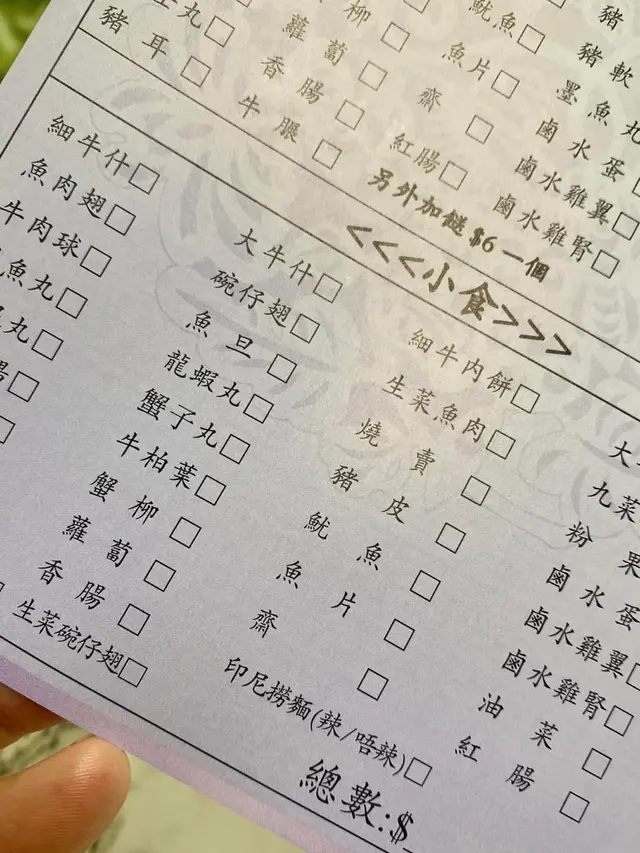 丸□ 柳□ 魷魚□ 豬
豬耳□ 蘿蔔□ 魚片□ 豬軟
香腸□ 齋□ 墨魚丸
牛□ 紅腸□ 鹵水蛋□
鹵水雞翼□
鹵水雞腎□
另外加餸$6一個
<<<小食>>>
細牛什□ 大牛什□ 細牛肉餅□ 大牛
魚肉翅□ 碗仔翅□ 生菜魚肉□ 九菜
牛肉球□ 魚旦□ 燒賣□ 粉果
魚丸□ 龍蝦丸□ 豬皮□ 鹵水蛋
丸□ 蟹子丸□ 魷魚□ 鹵水雞翼□
□ 牛柏葉□ 魚片□ 鹵水雞腎□
□ 蟹柳□ 齋□ 油菜□
蘿蔔□ 印尼撈麵(辣/唔辣)□ 紅腸□
香腸□
生菜碗仔翅□
總數:$